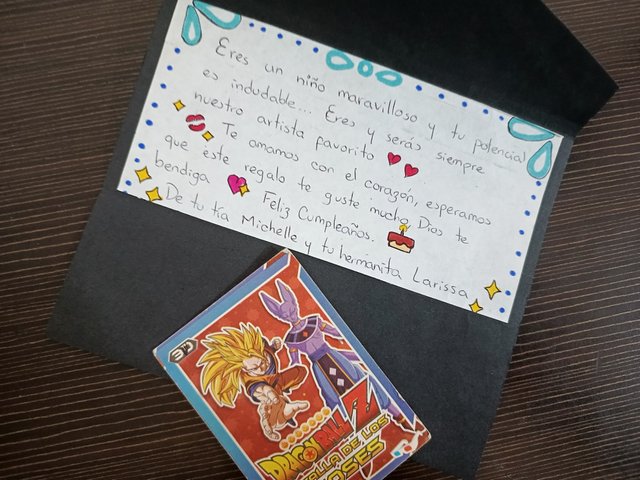 Eres un niño maravilloso y tu potencial
es indudable... Eres y serás siempre
nuestro artista favorito
Te amamos con el corazón, esperamos
que este regalo te guste mucho Dios te
bendiga Feliz Cumpleaños.
De tu tía Michelle y tu hermanita Larissa
3D
DRAGON BALL Z
LA DE LOS